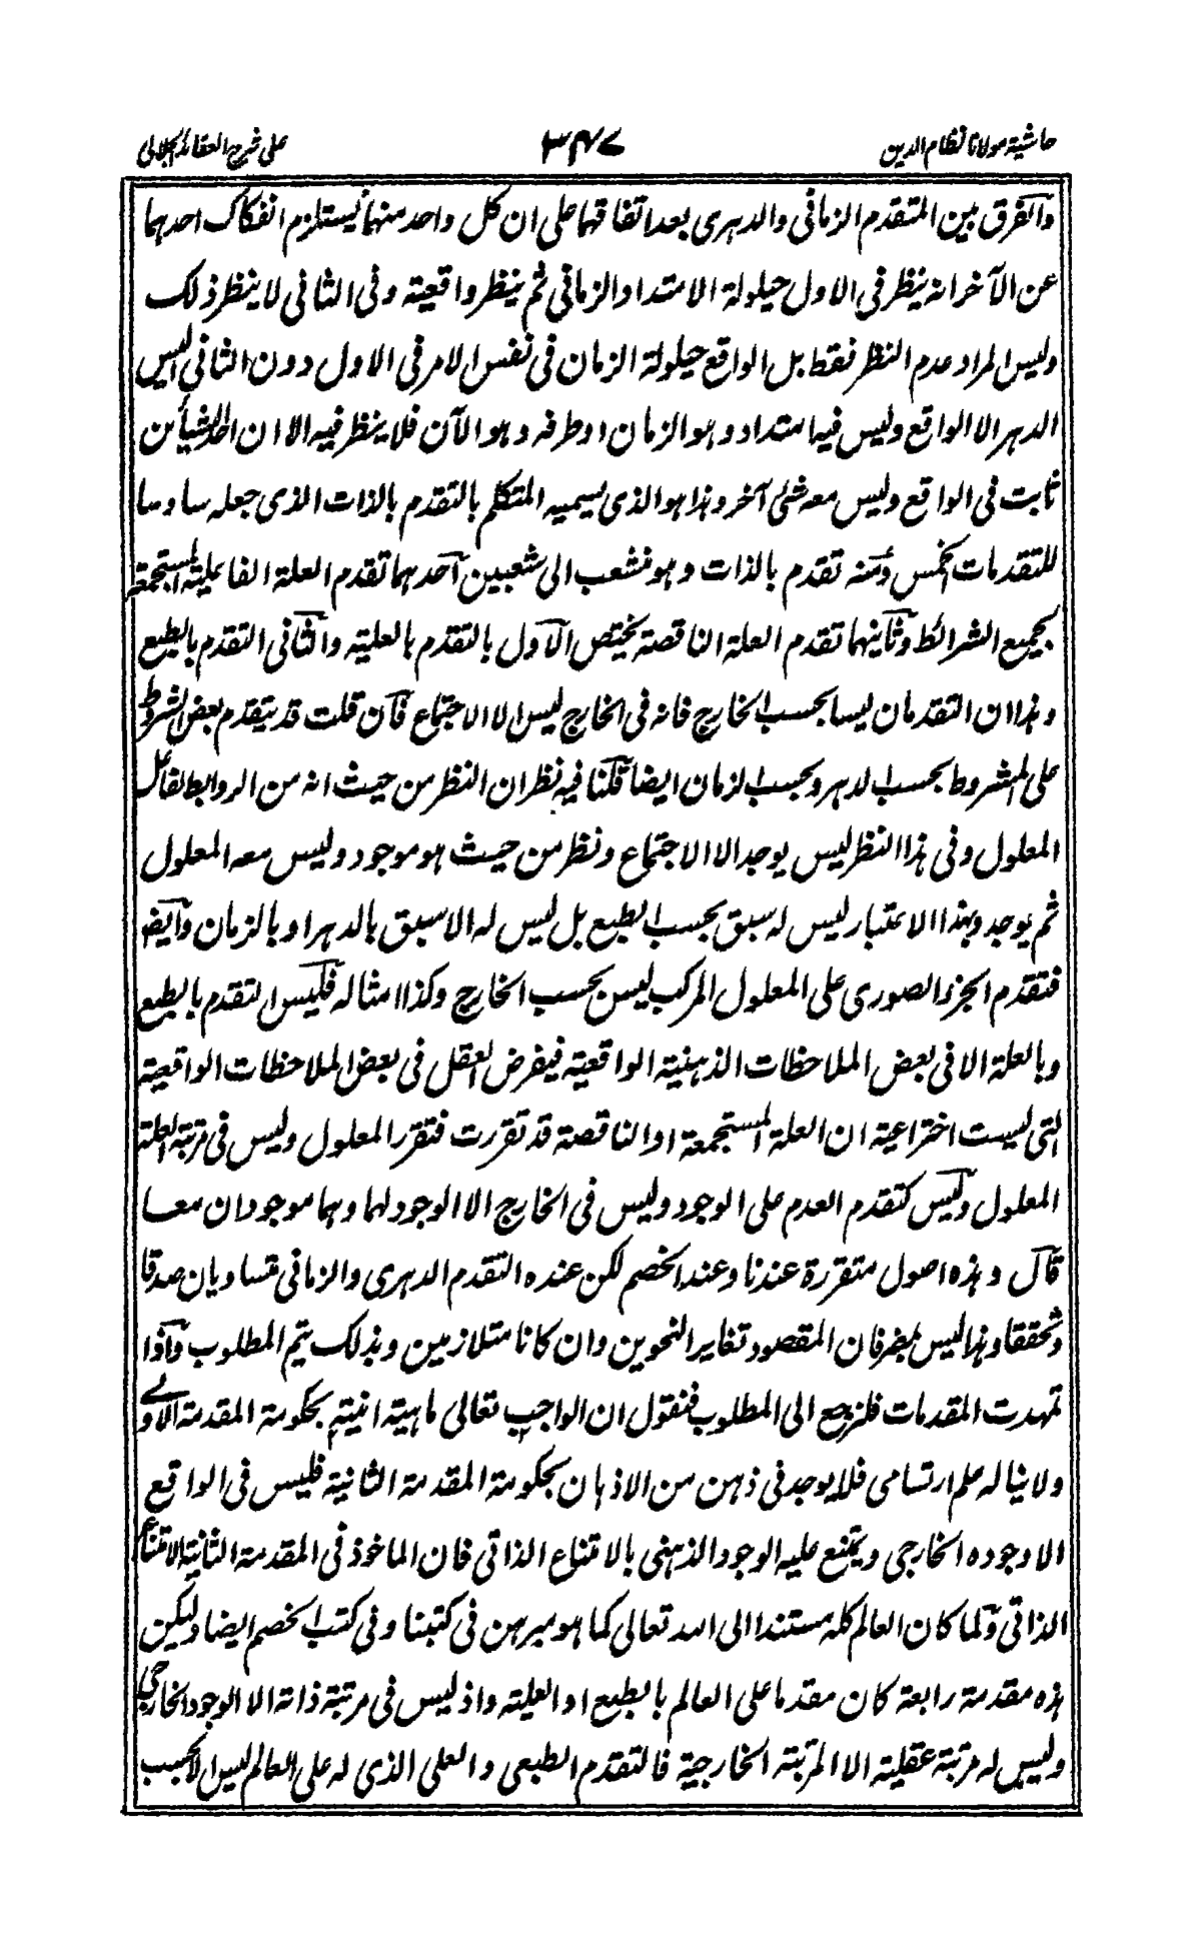 حاشية مولانا نظام الدين
٣٤٧
على شرح العقائد الجلالى
والفرق بين المتقدم الزمانى والدهرى بعد اتفاقهما على ان كل واحد منهما يستلزم انفكاك احدهما
عن الآخر انه ينظر فى الاول حيلولة الامتداد الزمانى ثم ينظر واقعيته وفى الثانى لا ينظر ذلك
وليس المراد عدم النظر فقط بل الواقع حيلولة الزمان فى نفس الامر فى الاول دون الثانى اليس
الدهر الا الواقع وليس فيه امتداد وهو الزمان او طرفه وهو الآن فلا ينظر فيه الا ان احد الشيأين
ثابت فى الواقع وليس معه شئ آخر وهذا هو الذى يسميه المتكلم بالتقدم بالذات الذى جعله سادسا
للتقدمات الخمس ومنه تقدم بالذات وهو منشعب الى شعبين احدهما تقدم العلة الفاعلية المستجمعة
بجميع الشرائط وثانيهما تقدم العلة الناقصة يختص الاول بالتقدم بالعلية والثانى التقدم بالطبع
وهذان التقدمان ليسا بحسب الخارج فانه فى الخارج ليس الا الاجتماع فان قلت قد يتقدم بعض الشروط
على المشروط بحسب الدهر وبحسب الزمان ايضا قلنا فيه نظران النظر من حيث انه من الروابط لفاعل
المعلول وفى هذا النظر ليس يوجد الا الاجتماع ونظر من حيث هو موجود وليس معه المعلول
ثم يوجد وبهذا الاعتبار ليس له سبق بحسب الطبع بل ليس له الا سبق بالدهر او بالزمان وايض
فتقدم الجزء الصورى على المعلول المركب ليس بحسب الخارج وكذا امثاله فليس التقدم بالطبع
وبالعلة الا فى بعض الملاحظات الذهنية الواقعية فيفرض العقل فى بعض الملاحظات الواقعية
التى ليست اختراعية ان العلة المستجمعة او الناقصة قد تقررت فتقرر المعلول وليس فى مرتبة العلة
المعلول وليس كتقدم العدم على الوجود وليس فى الخارج الا الوجود لهما وهما موجودان معا
قال وهذه اصول متقررة عندنا وعند الخصم لكن عنده التقدم الدهرى والزمانى متساويان صدقا
وتحققا وهذا ليس بمضر فان المقصود تغاير النحوين وان كانا متلازمين وبذلك يتم المطلوب واذا
تمهدت المقدمات فلنرجع الى المطلوب فنقول ان الواجب تعالى ماهيته انيته بحكومة المقدمة الاولى
ولا يناله علم ارتسامى فلا يوجد فى ذهن من الاذهان بحكومة المقدمة الثانية فليس فى الواقع
الا وجوده الخارجى ويمتنع عليه الوجود الذهنى بالامتناع الذاتى فان الماخوذ فى المقدمة الثانية الامتناع
الذاتى ولما كان العالم كله مستندا الى الله تعالى كما هو مبرهن فى كتبنا وفى كتب الخصم ايضا وليكن
هذه مقدمة رابعة كان مقدما على العالم بالطبع او العلية واذ ليس فى مرتبة ذاته الا الوجود الخارجى
وليس له مرتبة عقلية الا المرتبة الخارجية فالتقدم الطبعى والعلى الذى له على العالم ليس الا بحسب